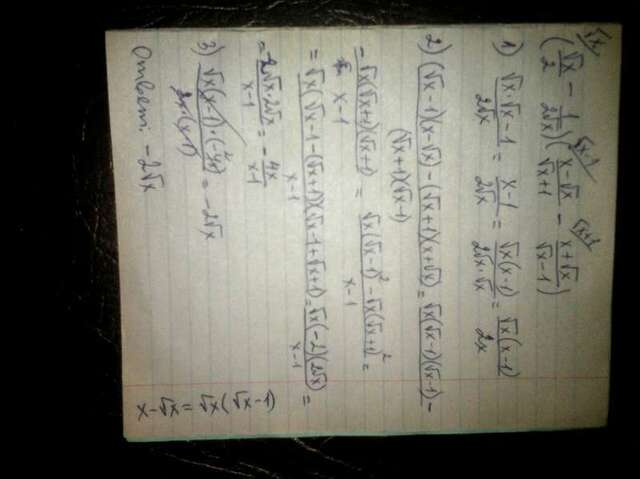 √x
(√x/2 − 1/2√x)(x−√x/√x+1 − x+√x/√x−1)
1) √x·√x−1/2√x = x−1/2√x = √x(x−1)/2√x·√x = √x(x−1)/2x
2) (√x−1)(x−√x)−(√x+1)(x+√x)/(√x+1)(√x−1) = √x(√x−1)(√x−1)−
−√x(√x+1)(√x+1)/x−1 = √x(√x−1)²−√x(√x+1)²/x−1 =
= √x(√x−1−(√x+1))(√x−1+√x+1)/x−1 = √x(−2)(2√x)/x−1 =
= −2√x·2√x/x−1 = −4x/x−1
3) √x(x−1)·(−4x)/2x·(x−1) = −2√x
Ответ: −2√x
x−√x = √x(√x−1)